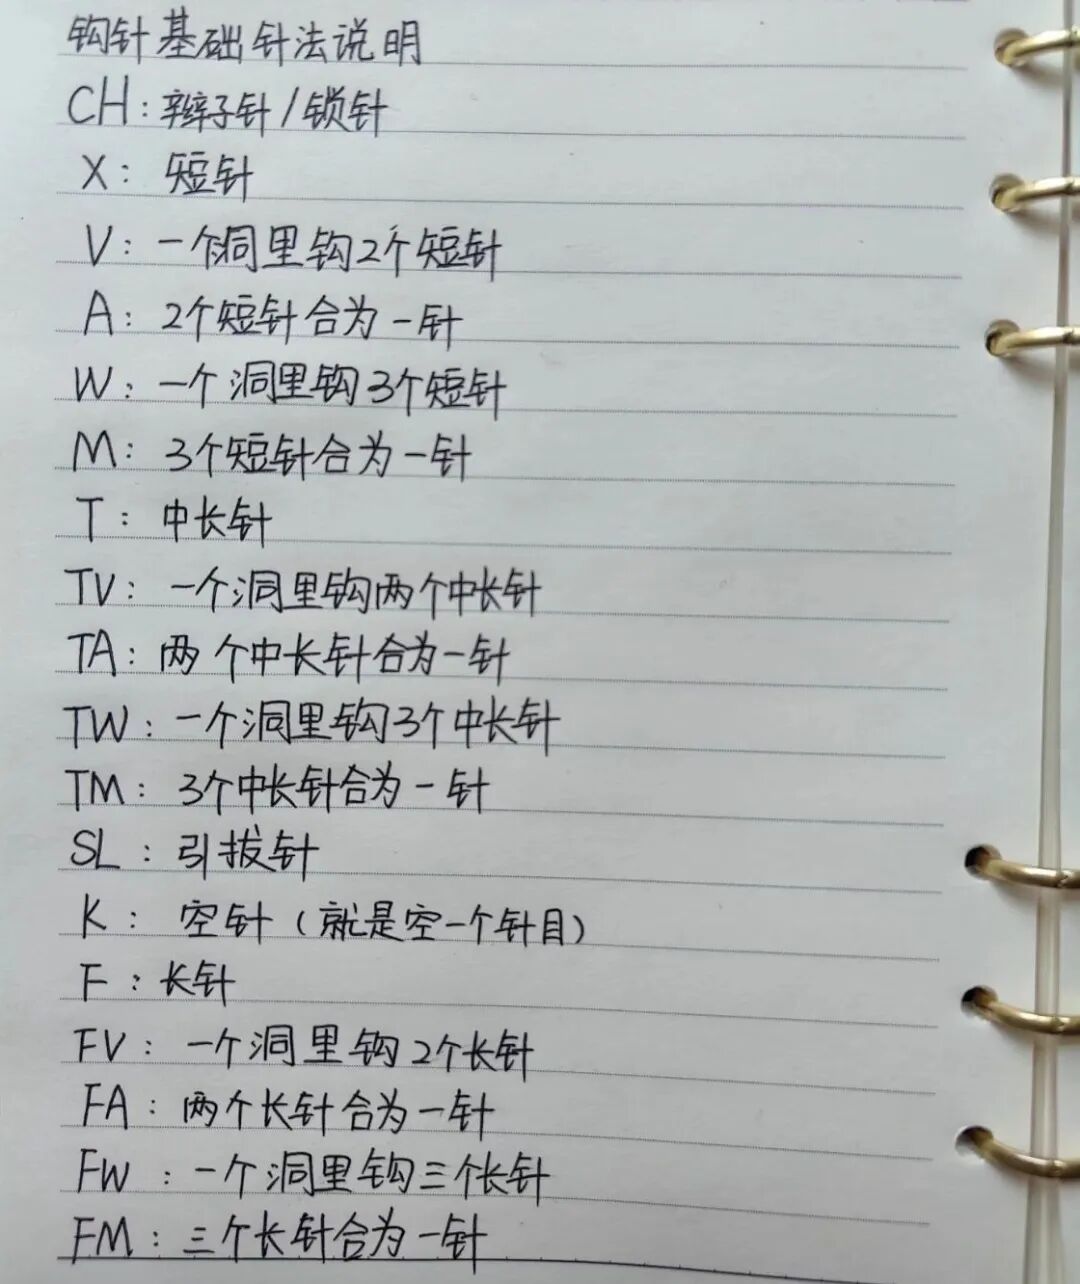 钩针基础针法说明
CH：辫子针/锁针
X：短针
V：一个洞里钩2个短针
A：2个短针合为一针
W：一个洞里钩3个短针
M：3个短针合为一针
T：中长针
TV：一个洞里钩两个中长针
TA：两个中长针合为一针
TW：一个洞里钩3个中长针
TM：3个中长针合为一针
SL：引拔针
K：空针（就是空一个针目）
F：长针
FV：一个洞里钩2个长针
FA：两个长针合为一针
FW：一个洞里钩三个长针
FM：三个长针合为一针